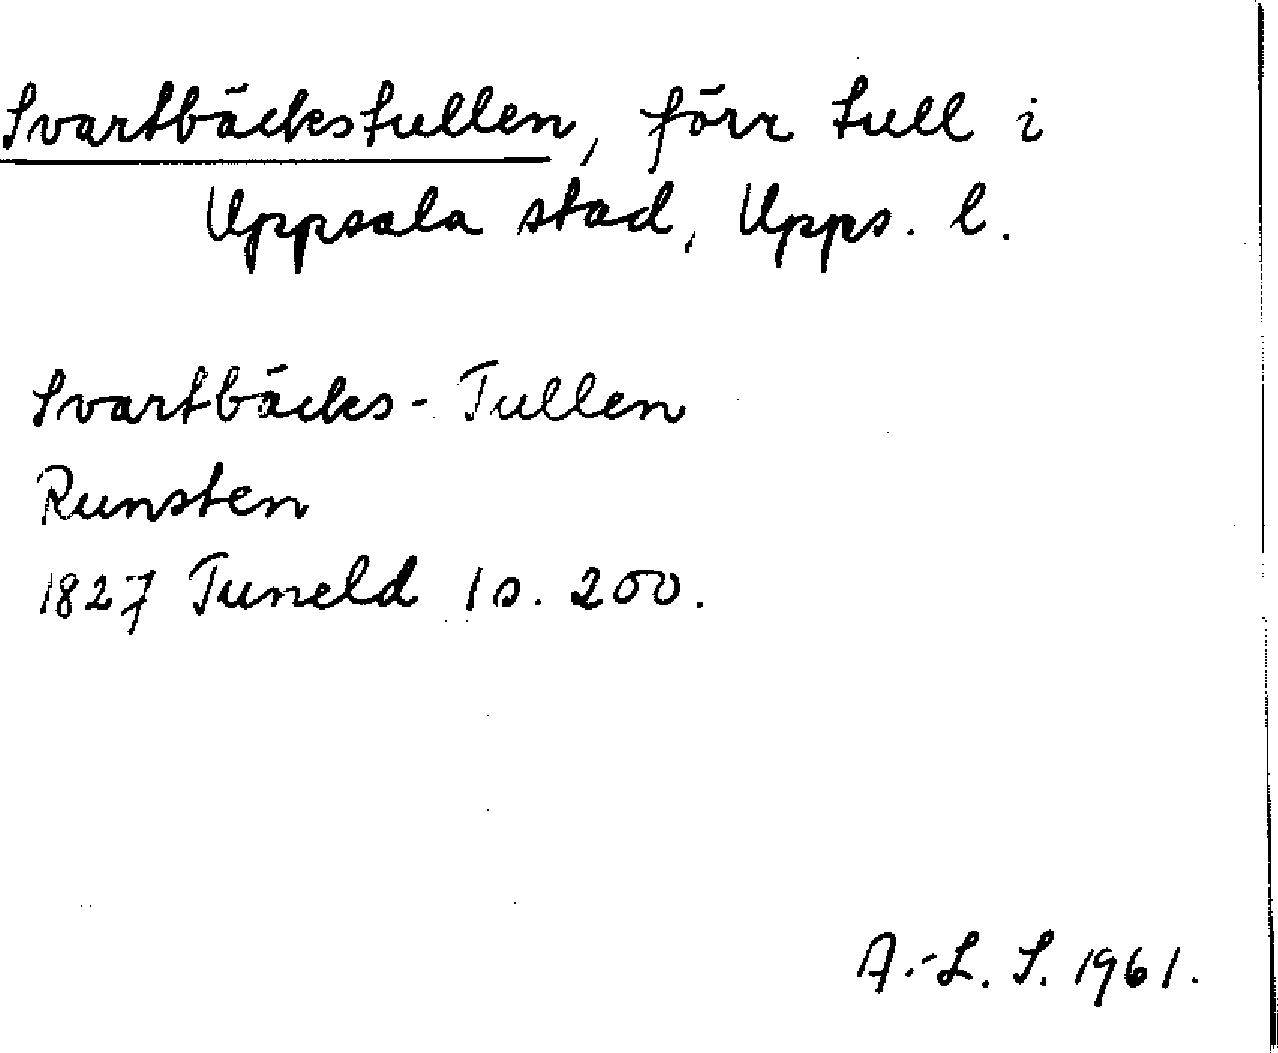 Svartbäckstullen, förr tull i
Uppsala stad, Upps. l.
Svartbäcks-Tullen
Runsten
1827 Tuneld 1 s. 200.
A.-L. S. 1961.